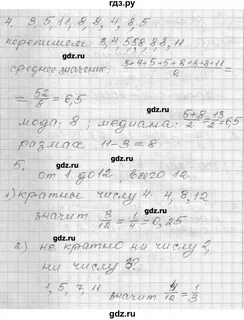 гдз.ру
4. 3, 5, 11, 8, 8, 4, 8, 5
перепишем 3, 4, 5 5 8 8 8, 11
среднее значение: 3+4+5+5+8+8+8+11 / 8 =
= 52/8 = 6,5
мода: 8 ; медиана: 5+8/2 = 13/2 = 6,5
размах 11-3=8
5.
от 1 до 12, всего 12
1) кратны числу 4: 4, 8, 12
значит 3/12 = 1/4 = 0,25
2) не кратно ни числу 2,
ни числу 3?
1, 5, 7, 11
значит 4/12 = 1/3
гдз.ру